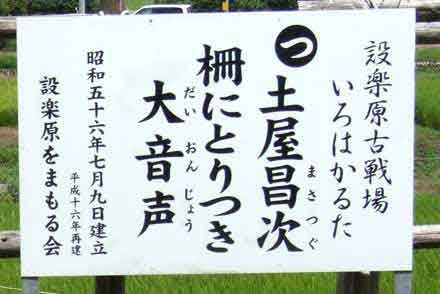 設楽原古戦場
いろはかるた
つ
土屋昌次
まさつぐ
柵にとりつき
大音声
だいおんじょう
昭和五十六年七月九日建立
平成十六年再建
設楽原をまもる会